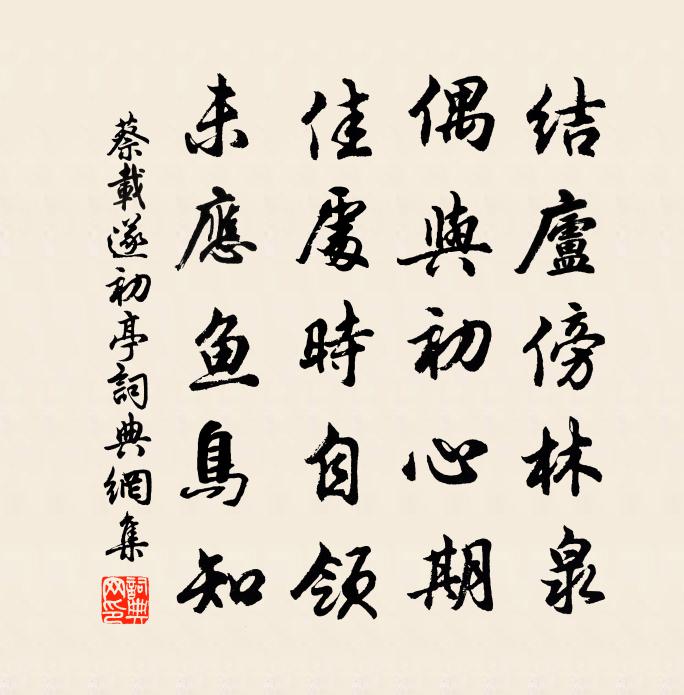 结廬傍林泉
偶與初心期
佳處時自領
未應鱼鳥知
蔡載遂初亭詞典網集
詞典网印